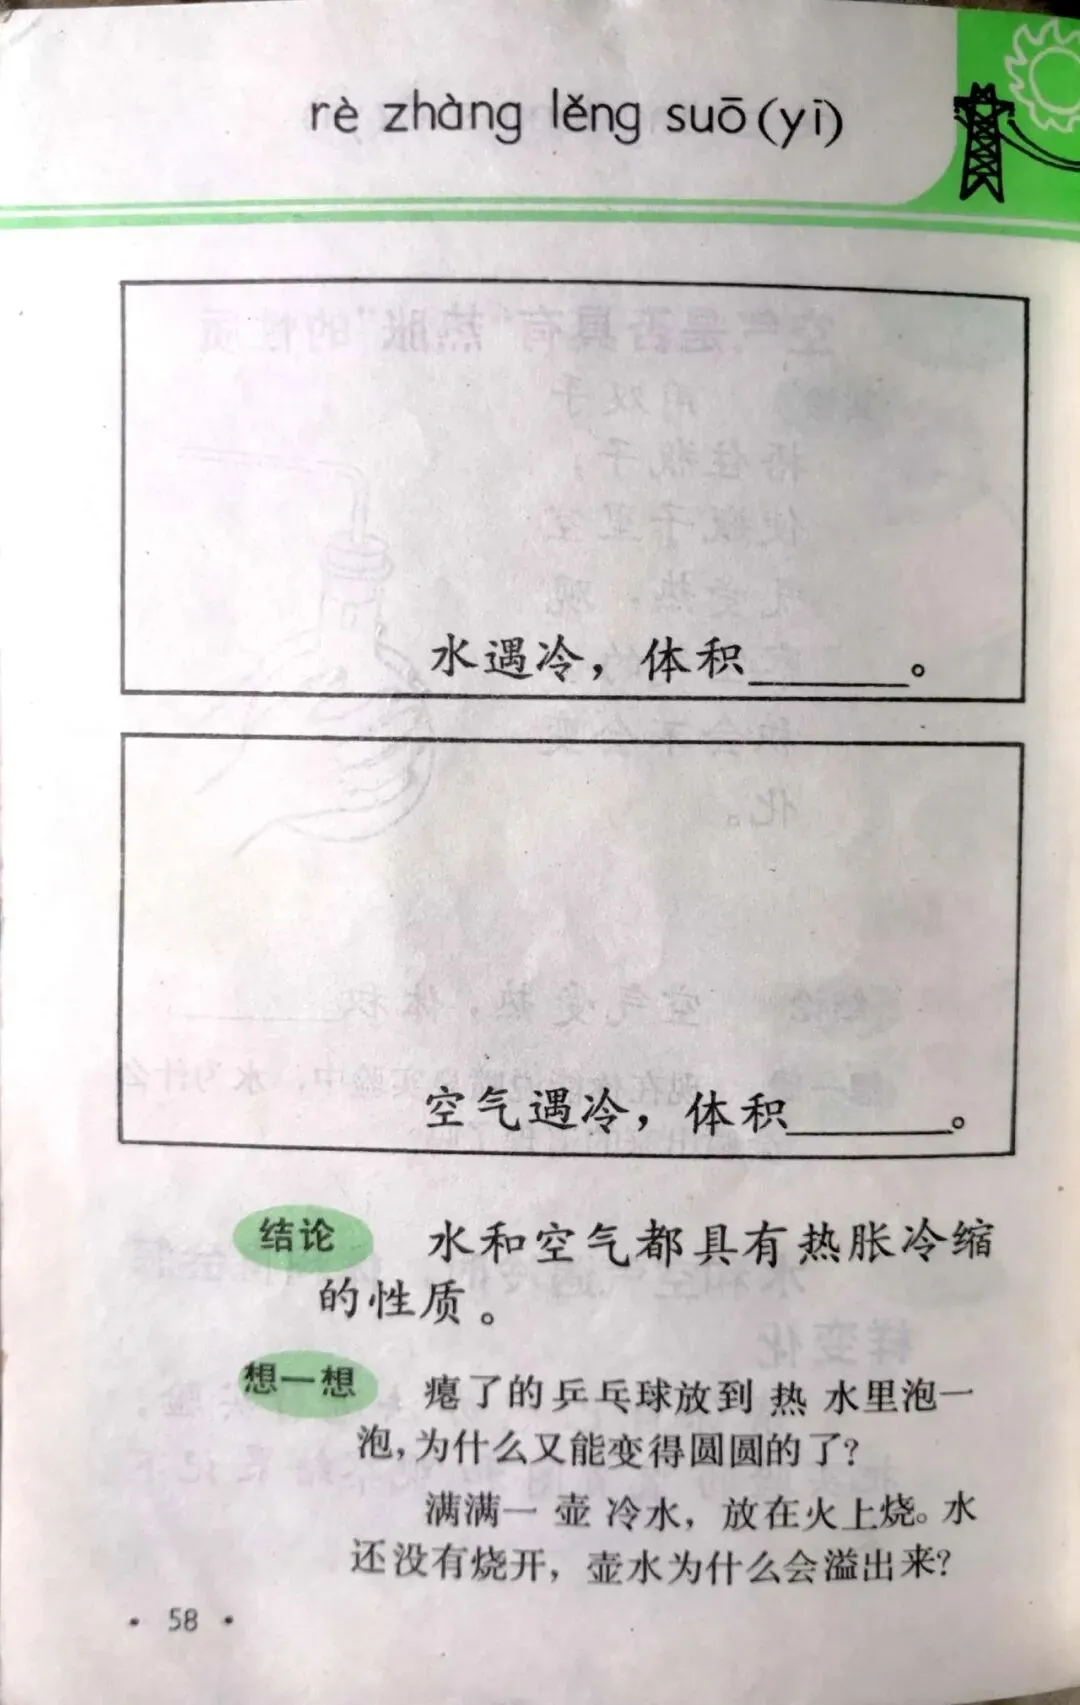 rè zhàng lěng suō (yī)
水遇冷，体积______。
空气遇冷，体积______。
结论 水和空气都具有热胀冷缩
的性质。
想一想 瘪了的乒乓球放到热水里泡一
泡，为什么又能变得圆圆的了？
满满一壶冷水，放在火上烧。水
还没有烧开，壶水为什么会溢出来？
· 58 ·